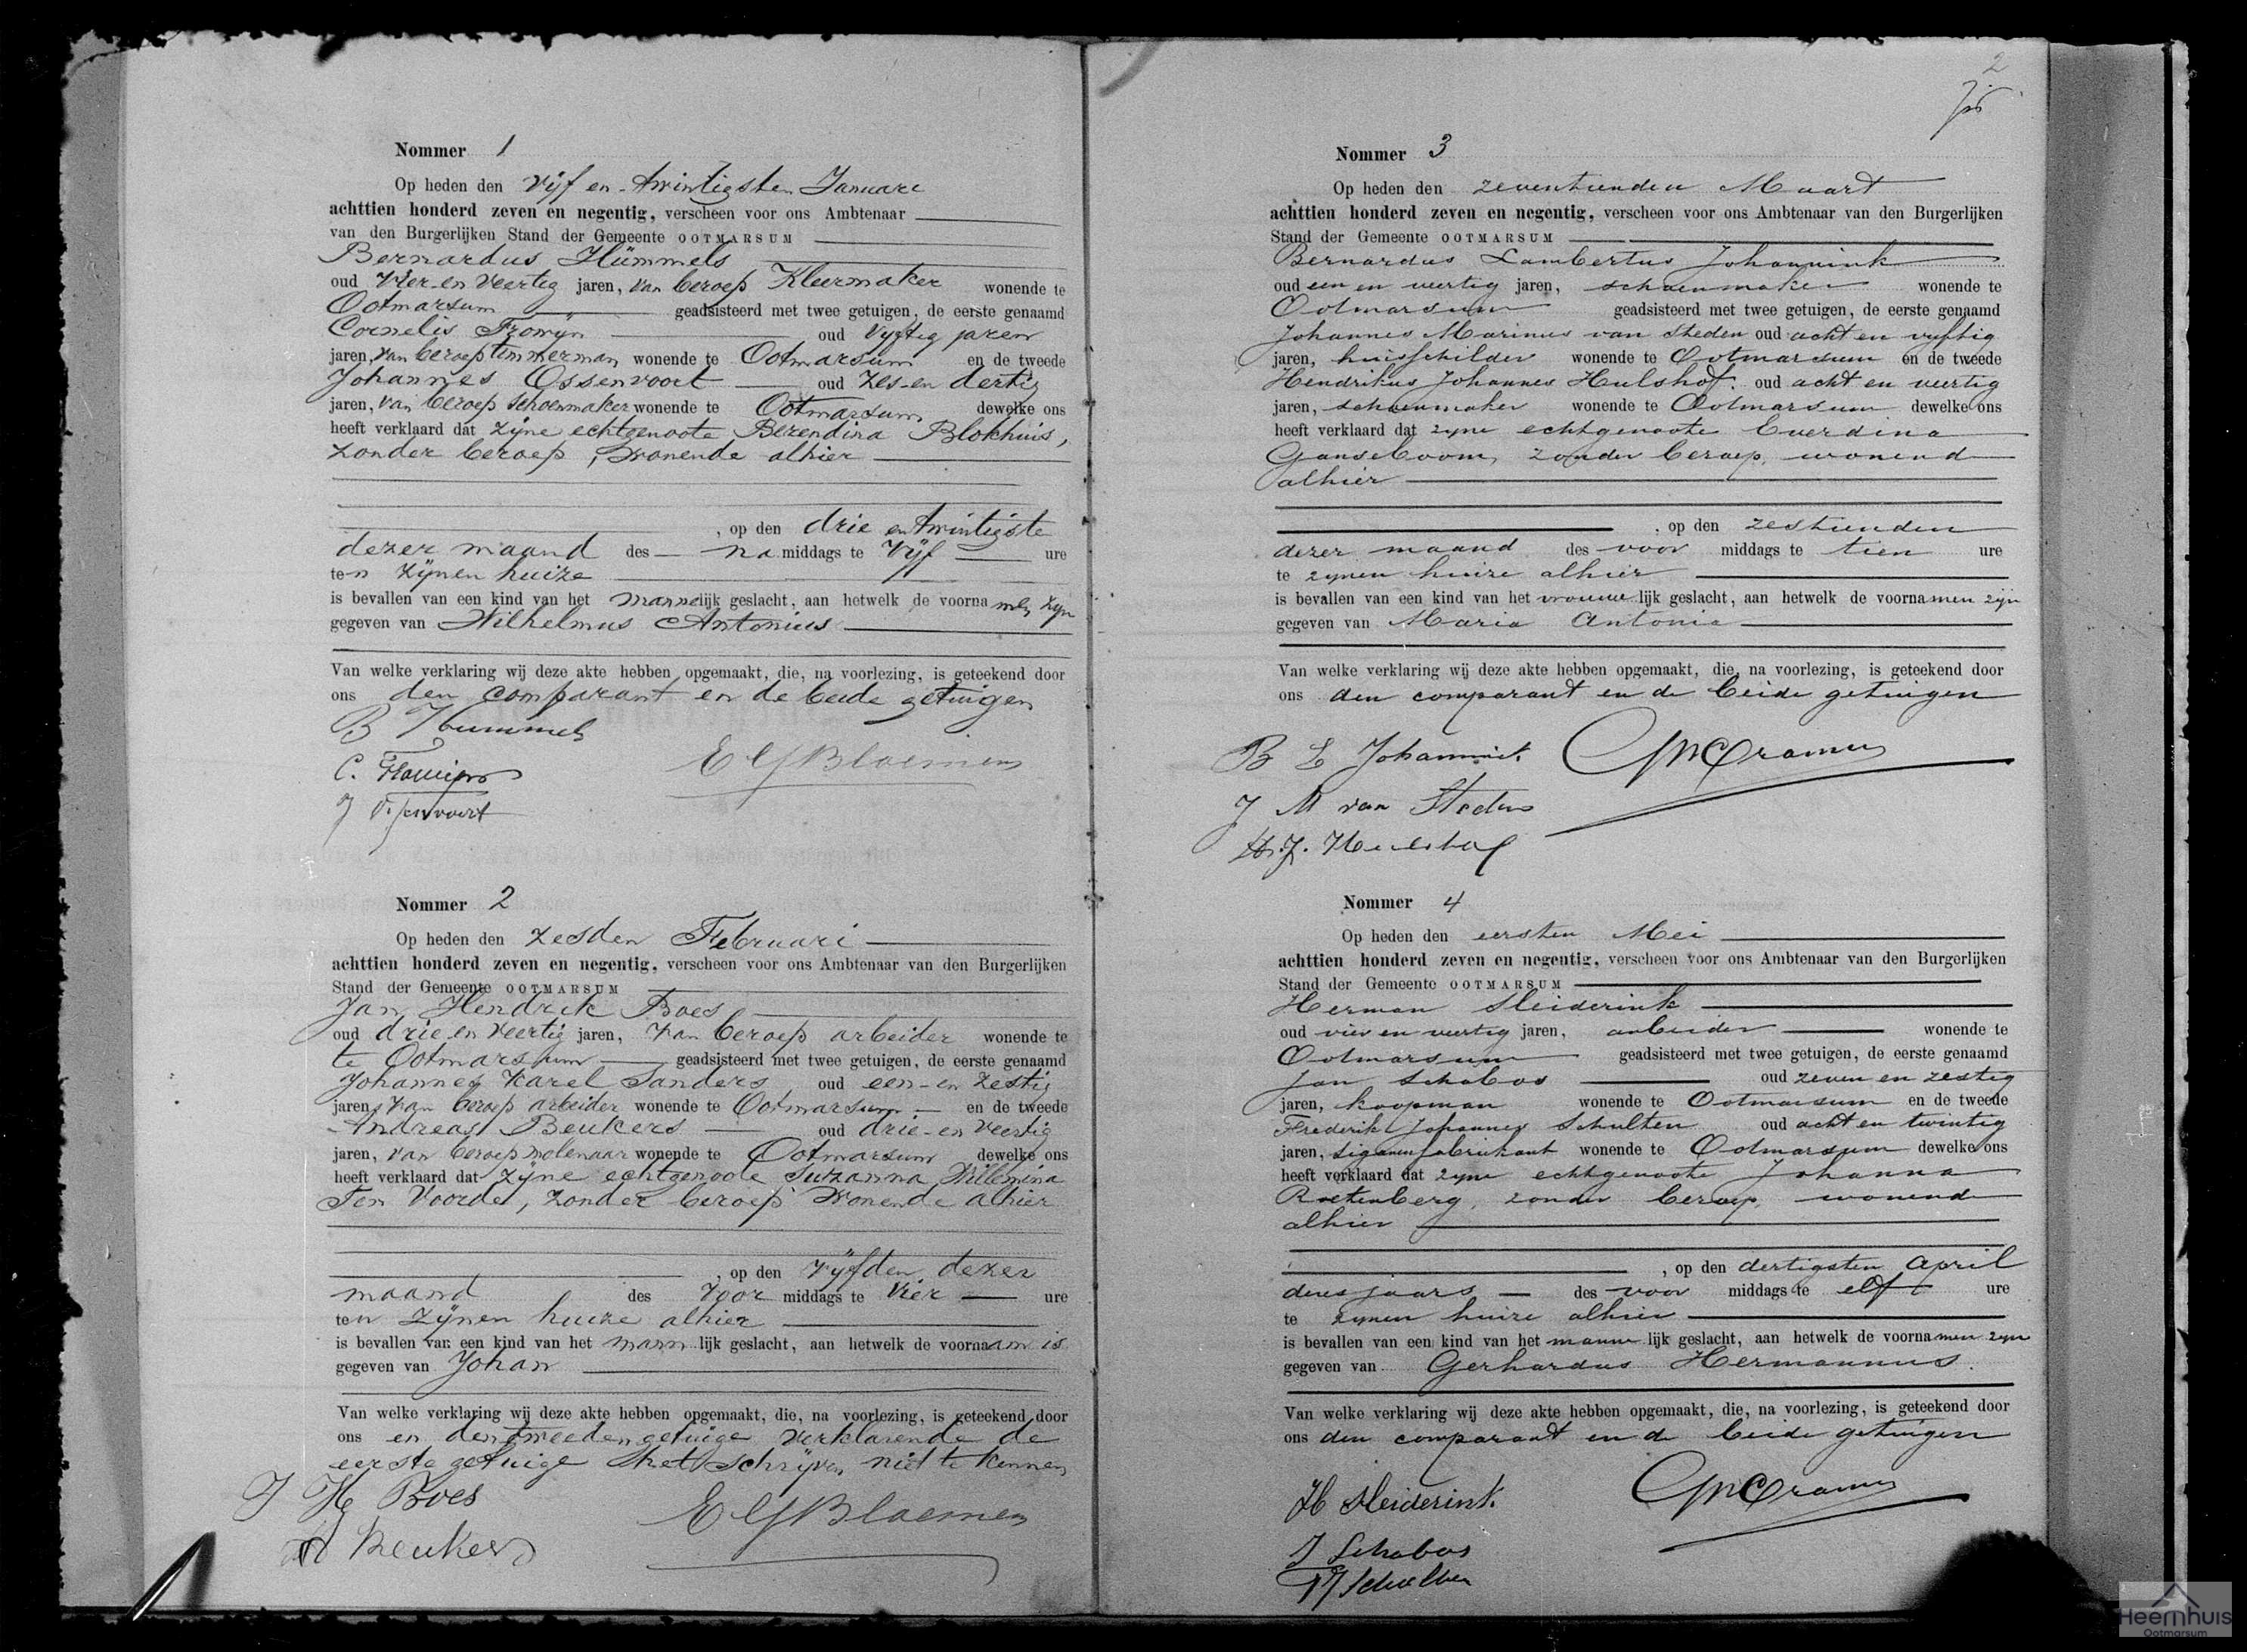 Nommer 1
Op heden den Vijf en twintigsten Januari
achttien honderd zeven en negentig, verscheen voor ons Ambtenaar
van den Burgerlijken Stand der Gemeente OOTMARSUM
Bernardus Hümmels
oud Vier en Veertig jaren, van beroep Kleermaker wonende te
Ootmarsum geadsisteerd met twee getuigen, de eerste genaamd
Cornelis Frowijn oud Vyftig jaren
jaren, van beroep timmerman wonende te Ootmarsum en de tweede
Johannes Ossenvoort oud Zes en dertig
jaren, van beroep schoenmaker wonende te Ootmarsum dewelke ons
heeft verklaard dat zijne echtgenoote Berendina Blokhuis,
zonder beroep, wonende alhier
, op den drie en twintigste
dezer maand des na middags te Vijf ure
ten zijnen huize
is bevallen van een kind van het mannelijk geslacht, aan hetwelk de voornamen zijn
gegeven van Wilhelmus Antonius
Van welke verklaring wij deze akte hebben opgemaakt, die, na voorlezing, is geteekend door
ons den comparant en de beide getuigen
B Hummels
C. Frowijn
E G Bloemen
J Ossenvoort
Nommer 2
Op heden den zesden Februari
achttien honderd zeven en negentig, verscheen voor ons Ambtenaar van den Burgerlijken
Stand der Gemeente OOTMARSUM
Jan Hendrik Boes
oud drie en Veertig jaren, van beroep arbeider wonende te
te Ootmarsum geadsisteerd met twee getuigen, de eerste genaamd
Johannes Karel Sanders oud een en zestig
jaren, van beroep arbeider wonende te Ootmarsum en de tweede
Andreas Beukers oud drie en Veertig
jaren, van beroep molenaar wonende te Ootmarsum dewelke ons
heeft verklaard dat zijne echtgenoote Suzanna Willemina
Ten Voorde, zonder beroep wonende alhier
, op den vijfden dezer
maand des Voor middags te Vier ure
ten zijnen huize alhier
is bevallen van een kind van het mannlijk geslacht, aan hetwelk de voornaam is
gegeven van Johan
Van welke verklaring wij deze akte hebben opgemaakt, die, na voorlezing, is geteekend door
ons en den tweeden getuige verklarende de
eerste getuige het schrijven niet te kennen
J H Boes
E G Bloemen
A Beukers
2
Nommer 3
Op heden den zeventienden Maart
achttien honderd zeven en negentig, verscheen voor ons Ambtenaar van den Burgerlijken
Stand der Gemeente OOTMARSUM
Bernardus Lambertus Johannink
oud een en veertig jaren, schoenmaker wonende te
Ootmarsum geadsisteerd met twee getuigen, de eerste genaamd
Johannes Marinus van Steden oud acht en vyftig
jaren, huisschilder wonende te Ootmarsum en de tweede
Hendrikus Johannes Hulshof oud acht en veertig
jaren, schoenmaker wonende te Ootmarsum dewelke ons
heeft verklaard dat zyne echtgenoote Everdina
Ganseboom, zonder beroep, wonend
alhier
, op den zestienden
dezer maand des voor middags te tien ure
te zynen huize alhier
is bevallen van een kind van het vrouwelijk geslacht, aan hetwelk de voornamen zijn
gegeven van Maria Antonia
Van welke verklaring wij deze akte hebben opgemaakt, die, na voorlezing, is geteekend door
ons den comparant en de beide getuigen
B L Johannink Cramer
J M van Steden
H. J. Hulshof
Nommer 4
Op heden den eersten Mei
achttien honderd zeven en negentig, verscheen voor ons Ambtenaar van den Burgerlijken
Stand der Gemeente OOTMARSUM
Herman Sleiderink
oud vier en veertig jaren, arbeider wonende te
Ootmarsum geadsisteerd met twee getuigen, de eerste genaamd
Jan Schabos oud zeven en zestig
jaren, koopman wonende te Ootmarsum en de tweede
Frederik Johannes Schulten oud acht en twintig
jaren, sigarenfabrikant wonende te Ootmarsum dewelke ons
heeft verklaard dat zyne echtgenoote Johanna
zonder beroep, wonende
alhier
, op den dertigsten April
dezes jaars des voor middags te elf ure
te zynen huize alhier
is bevallen van een kind van het mannelijk geslacht, aan hetwelk de voornamen zyn
gegeven van Gerhardus Hermannus.
Van welke verklaring wij deze akte hebben opgemaakt, die, na voorlezing, is geteekend door
ons den comparant en de beide getuigen
H Sleiderink. Cramer
J Schabos
FJ Schulten
Heemhuis
Ootmarsum